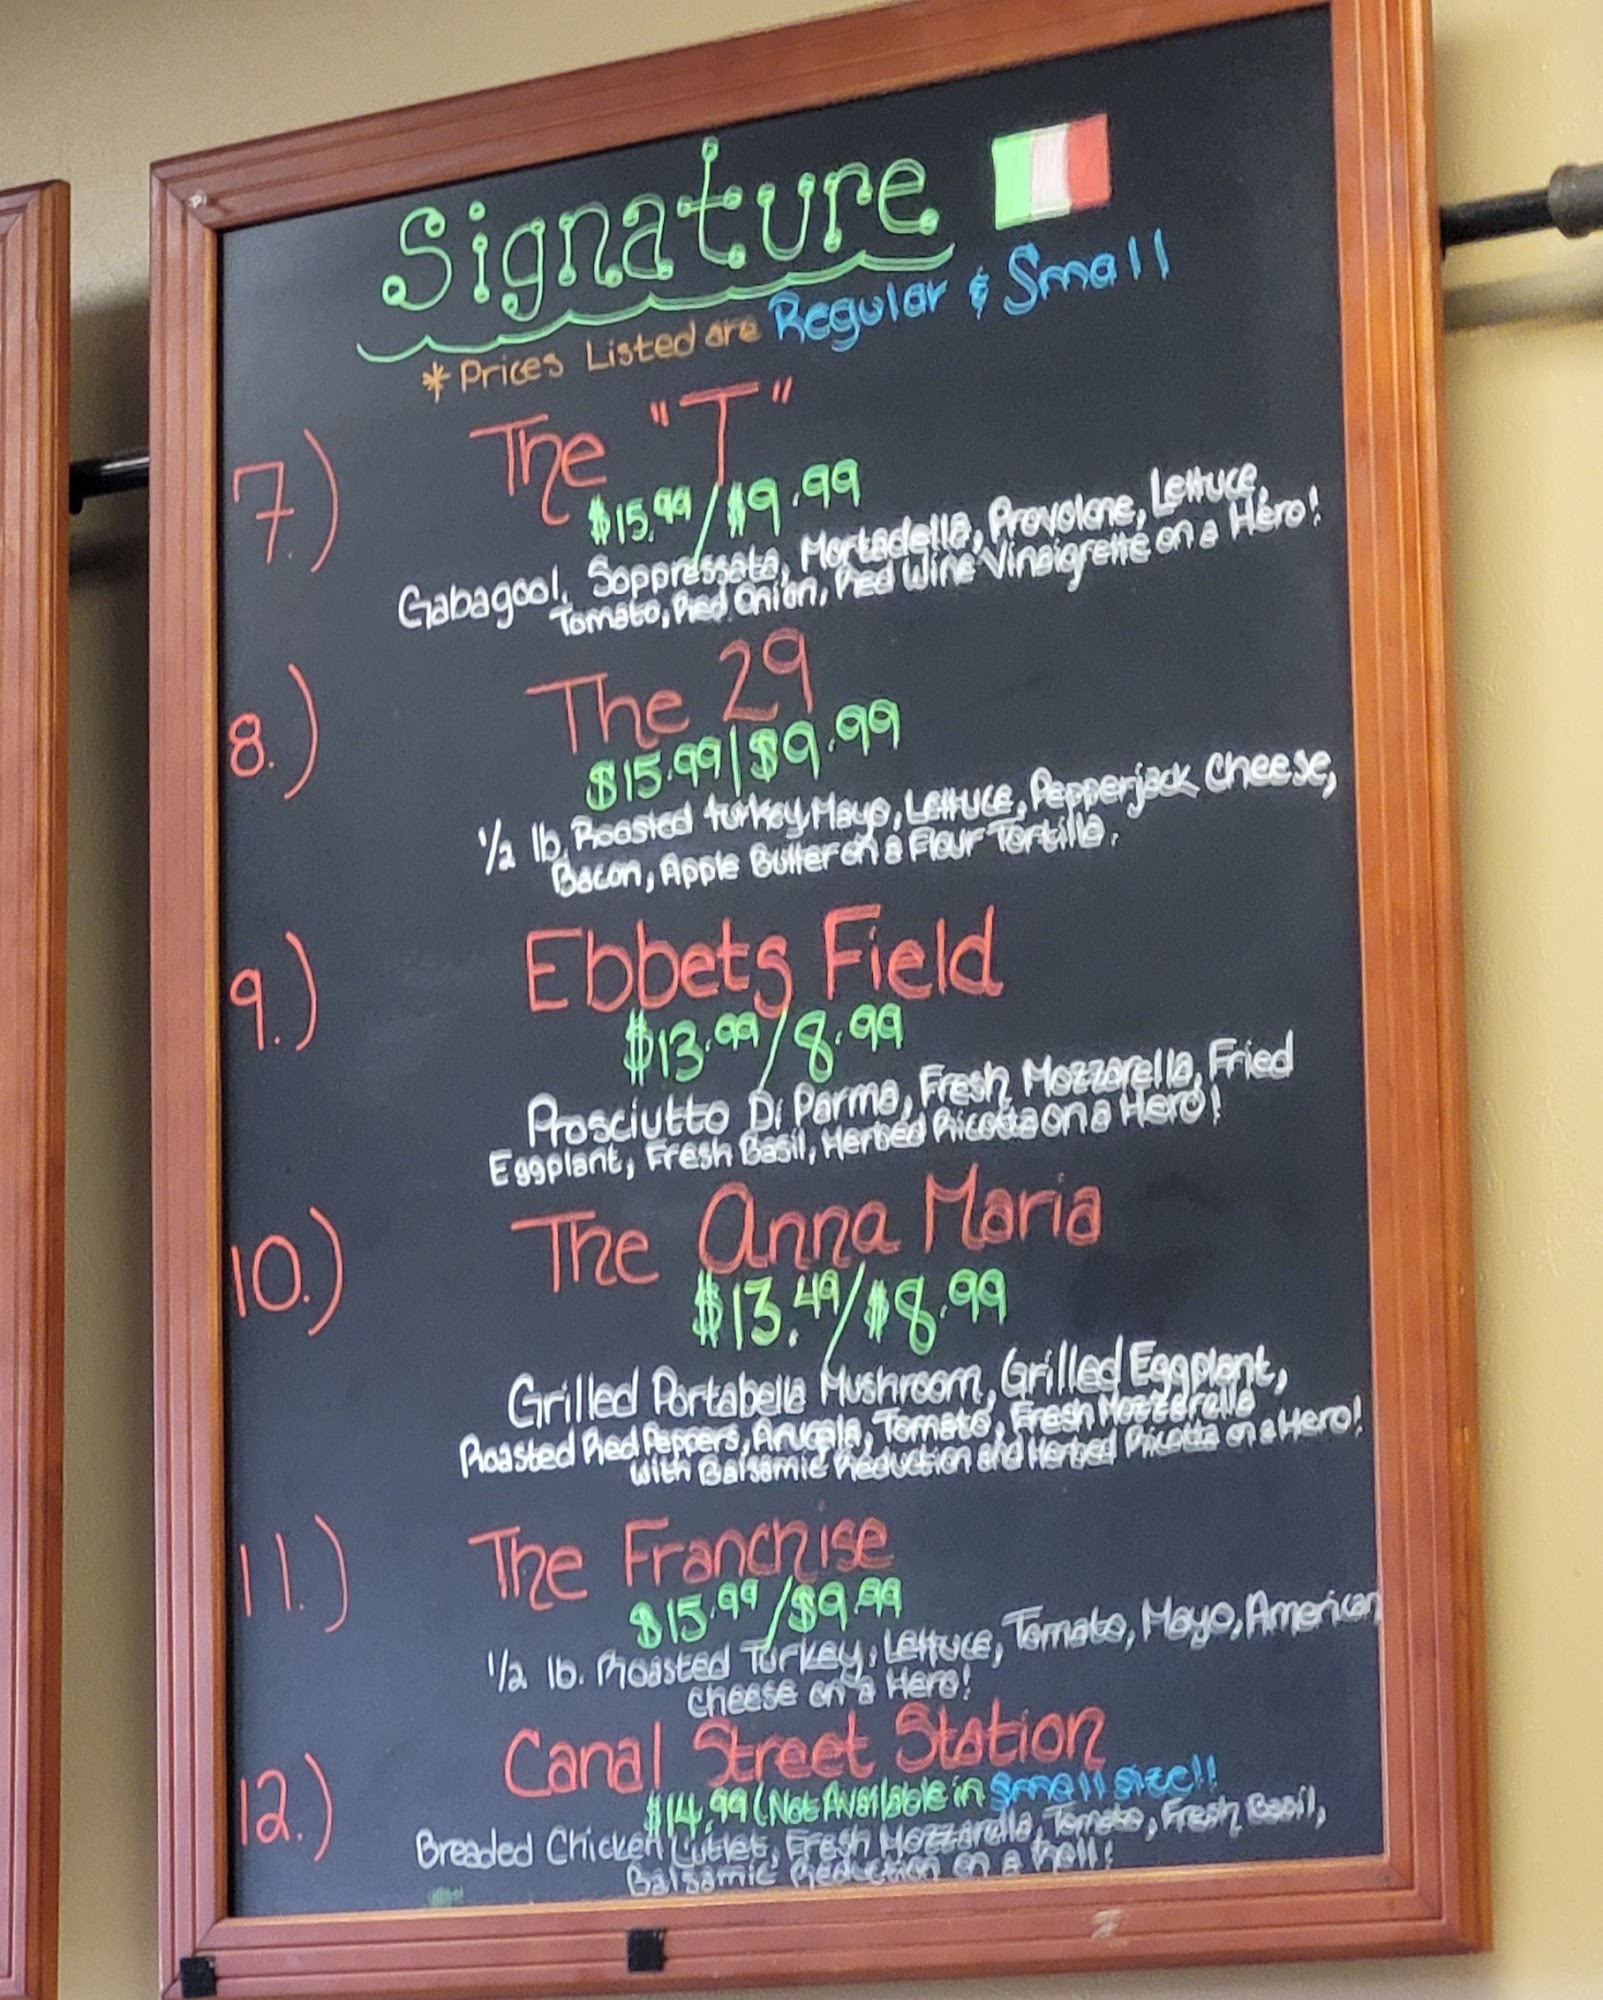 Signature
*Prices Listed are Regular & Small
7.) The "T"
$15.99/$9.99
Gabagool, Soppressata, Mortadella, Provolone, Lettuce,
Tomato, Red Onion, Red Wine Vinaigrette on a Hero!
8.) The 29
$15.99|$9.99
1/2 lb. Roasted turkey, Mayo, Lettuce, Pepperjack Cheese,
Bacon, Apple Butter on a Flour Tortilla.
9.) Ebbets Field
$13.99/8.99
Prosciutto Di Parma, Fresh Mozzarella, Fried
Eggplant, Fresh Basil, Herbed Ricotta on a Hero!
10.) The Anna Maria
$13.49/$8.99
Grilled Portabella Mushroom, Grilled Eggplant,
Roasted Red Peppers, Arugala, Tomato, Fresh Mozzarella
with Balsamic Reduction and Herbed Ricotta on a Hero!
11.) The Franchise
$15.99/$9.99
1/2 lb. Roasted Turkey, Lettuce, Tomato, Mayo, American
Cheese on a Hero!
12.) Canal Street Station
$14.99 (Not Available in Small size!!
Breaded Chicken Cutlet, Fresh Mozzarella, Tomato, Fresh Basil,
Balsamic Reduction on a Roll!